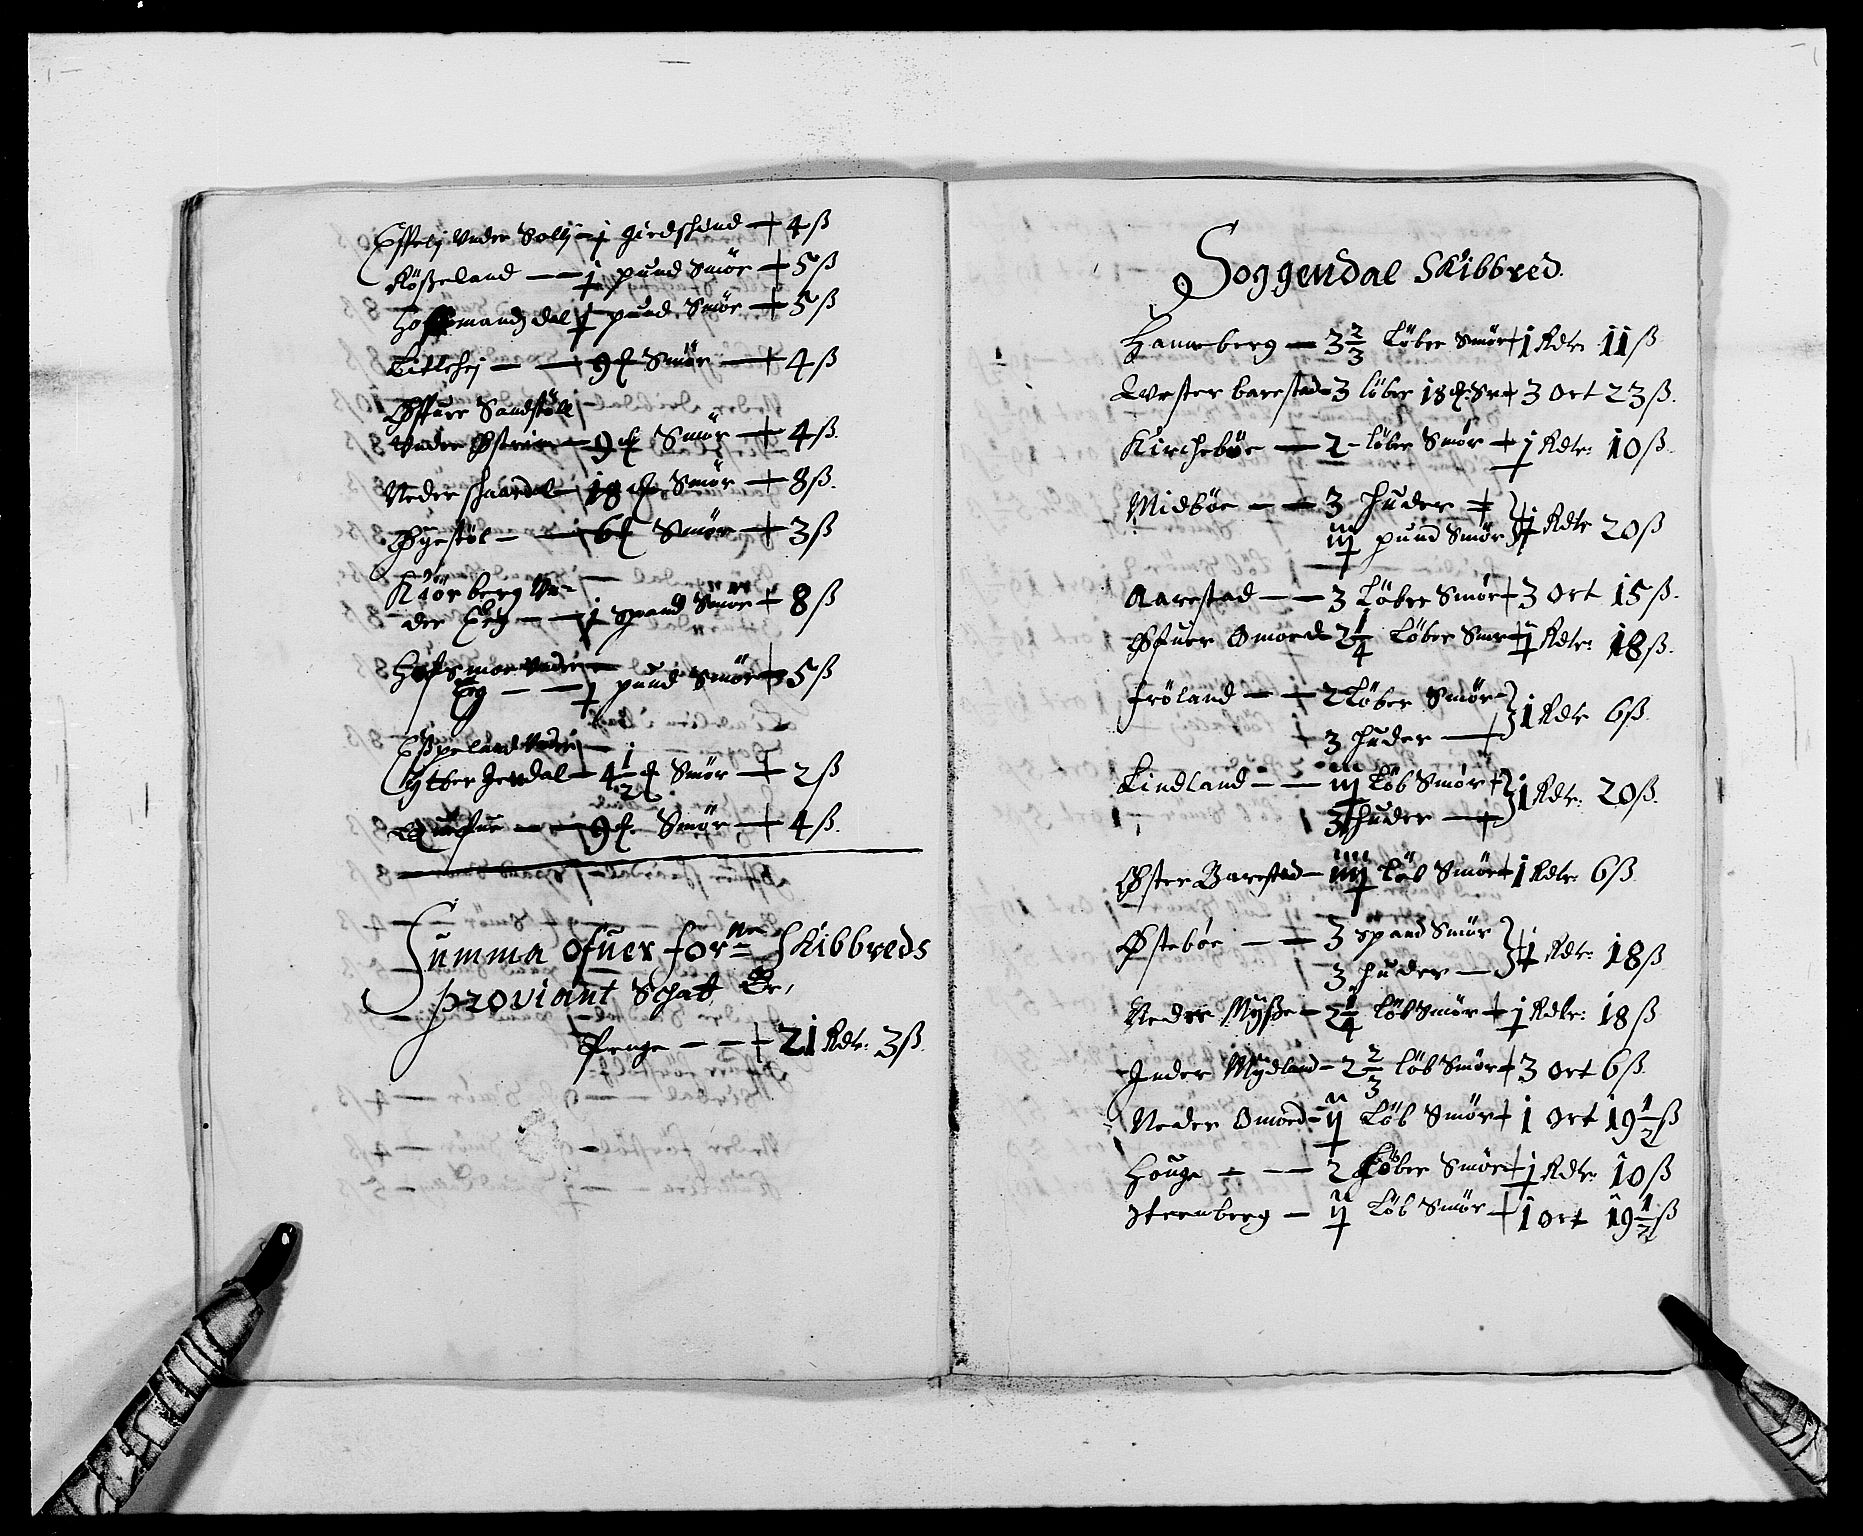 Vnder Solli – j giedschind – 4 ß
Rößeland – – ɉ pund Smör – 5 ß
dal ɉ pund Smör – 5 ß
Litlehej – – 9 ₰ Smör – 4 ß
Øffuer Sandstöll
Vnder – 9 ₰ Smör – 4 ß.
Neder – 18 ₰ Smör – 8 ß.
Øgestöl – – 6 ₰ Smör – 3 ß
Kiörberg Vn-
der Eeg – – j Spand Smör – 8 ß
Vnder
Eeg – – ɉ pund Smör – 5 ß
Eßpeland Vnder
ytter – 4 1/2 ₰ Smör – 2 ß
– – 9 ₰ Smör – 4 ß.
Summa ofuer for:ne Skibbreds
proviant Schatt Er,
Penge – – 21 Rdr: 3 ß.
Soggendal Skibbred.
Hanneberg – 3 2/3 Löber Smör – 1 Rdr 11 ß
Wester barestad – 3 löber 18 ₰ Sr – 3 Ort 23 ß.
Kircheböe – 2 – löber Smör – ɉ Rdr: 10 ß.
Midböe – – 3 huder
iiɉ pund Smör } ɉ Rdr 20 ß
Aarestad – – 3 Löber Smör – 3 Ort 15 ß.
Øfuer Omord – 2 1/4 Löber Smör – ɉ Rdr: 18 ß.
Fröland – – 2 Löber Smör
3 huder – } 1 Rdr 6 ß
Lindland – – iiɉ Löb Smör
3 huder – } 1 Rdr: 20 ß.
Øster Barestad – iiiɉ Löb Smör – 1 Rdr: 6 ß
Østeböe – – 3 spand Smör
3 huder – } ɉ Rdr: 18 ß
Neder Myßße – 2 1/4 löb Smör – ɉ Rdr: 18 ß
Inder Mydland – 2 2/3 löb Smör – 3 Ort 6 ß
Neder Omord – iɉ Löb Smör – 1 Ort 19 1/2 ß
Houge – – 2 Löber Smör – ɉ Rdr: 10 ß
Steenberg – iɉ Löb Smör – 1 Ort 19 1/2 ß